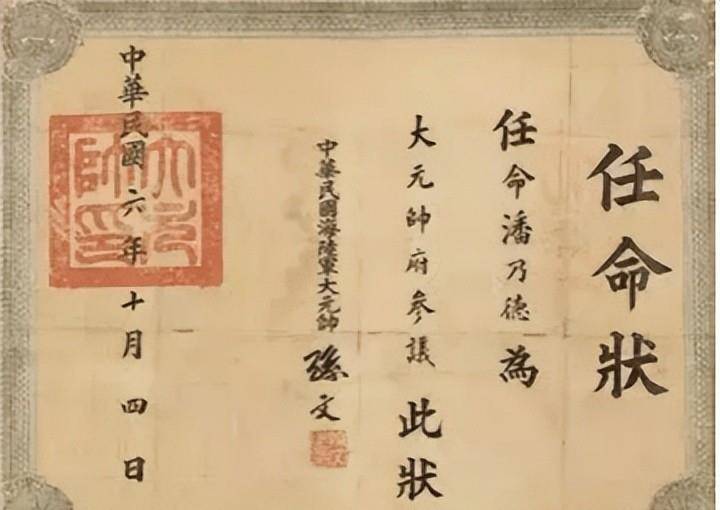 任命狀
任命潘乃德為
大元帥府參議此狀
中華民國海陸軍大元帥孫文
中華民國六年十月四日
大元帥印